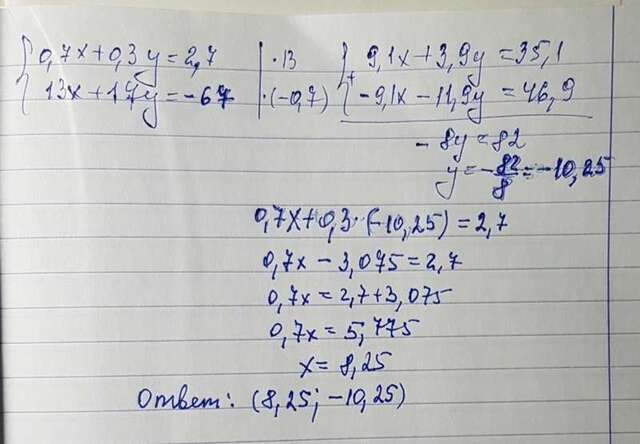 0,7x+0,3y=2,7 | ·13 9,1x+3,9y=35,1
13x+17y=-67 | ·(-0,7) + -9,1x-11,9y=46,9
-8y=82
y=-82/8=-10,25
0,7x+0,3·(-10,25)=2,7
0,7x-3,075=2,7
0,7x=2,7+3,075
0,7x=5,775
x=8,25
Ответ: (8,25; -10,25)